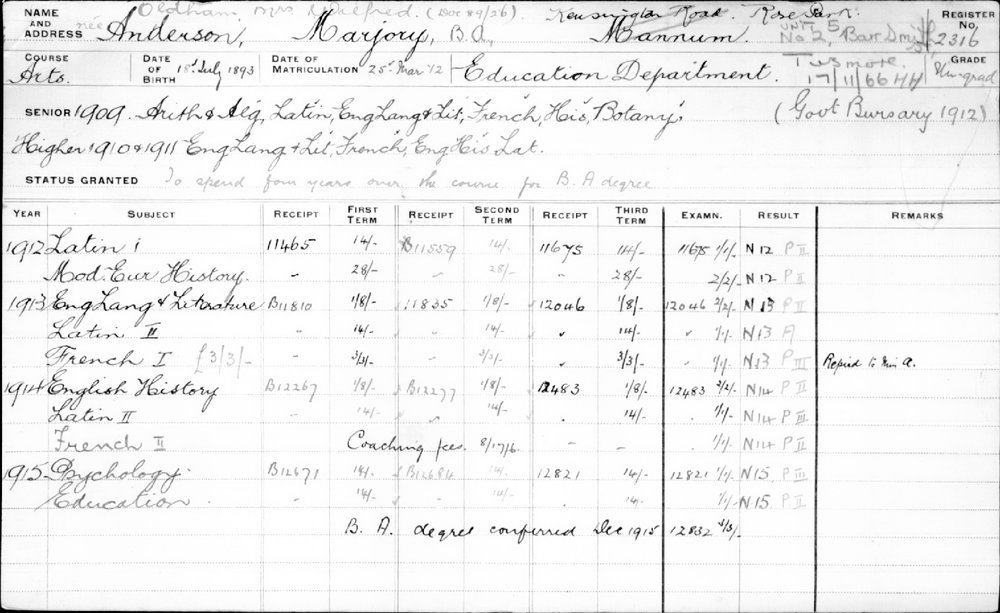 NAME AND ADDRESS Oldham, Mrs Wilfred. (Doc 89/26) Kensington Road Rose Park. REGISTER No.
née Anderson, Marjory, B.A., Mannum. UNIT 5 No 2, Barr Smith 2316
COURSE Arts. DATE OF BIRTH 18th July 1893 DATE OF MATRICULATION 25th Mar '12 Education Department. Tusmore. 17/11/66 HH GRADE Un-grad
SENIOR 1909. Arith & Alg, Latin, Eng Lang & Lit, French, His, Botany; (Govt Bursary 1912)
Higher 1910 & 1911 Eng Lang & Lit, French, Eng His Lat.
STATUS GRANTED To spend four years over the course for B.A degree
YEAR SUBJECT RECEIPT FIRST TERM RECEIPT SECOND TERM RECEIPT THIRD TERM EXAMN. RESULT REMARKS
1912 Latin i 11465 14/- B11559 14/- 11675 14/- 11675 1/1/- N12 P II
Mod. Eur History. " 28/- " 28/- " 28/- 2/2/- N12 P II
1913 Eng Lang & Literature B11810 1/8/- 11835 1/8/- 12046 1/8/- 12046 2/2/- N13 P II
Latin II " 14/- " 14/- " 14/- " 1/1/- N13 A
French I £3/3/- 3/3/- " 3/3/- " 3/3/- " 1/1/- N13 P III Repaid to Miss A.
1914 English History B12267 1/8/- B12277 1/8/- 12483 1/8/- 12483 2/2/- N14 P II
Latin II " 14/- 14/- " 14/- " 1/1/- N14 P III
French II Coaching fees. 8/17/6. - - 1/1/- N14 P II
1915 Psychology B12671 14/- B12684 14/- 12821 14/- 12821 1/1/- N15. P III
Education " 14/- " 14/- " 14/- 1/1/- N15. P II
B. A. degree conferred Dec 1915 12832 3/3/-